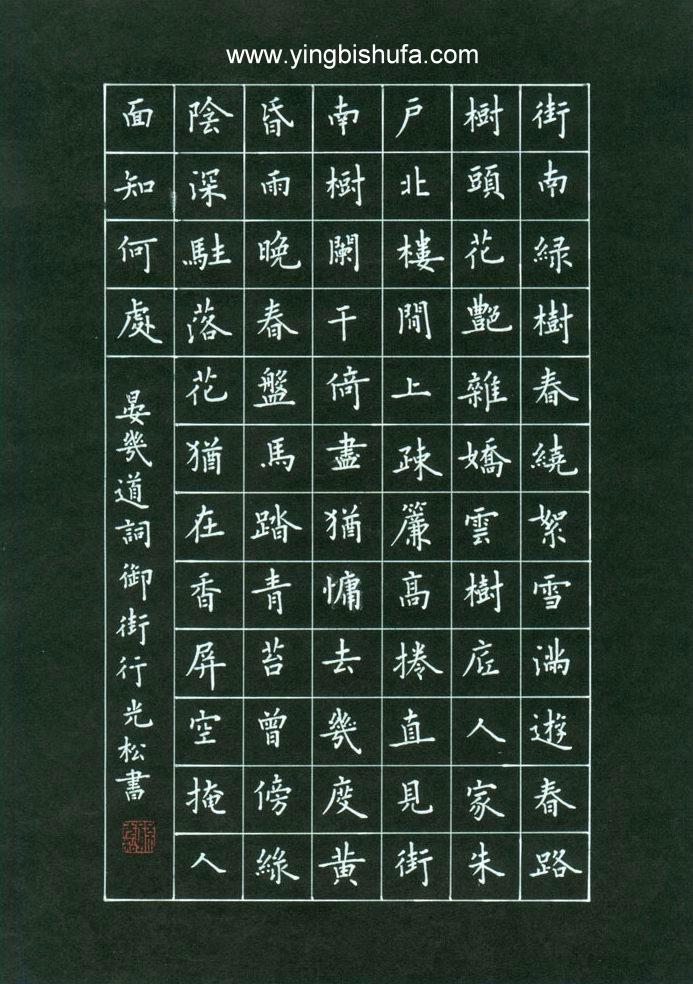 www.yingbishufa.com
街南綠樹春繞絮雪滿遊春路
樹頭花艷雜嬌雲樹底人家朱
戶北樓間上疎簾高捲直見街
南樹闌干倚盡猶慵去幾度黃
昏雨晚春盤馬踏青苔曾傍綠
陰深駐落花猶在香屏空掩人
面知何處
晏幾道詞御街行光松書